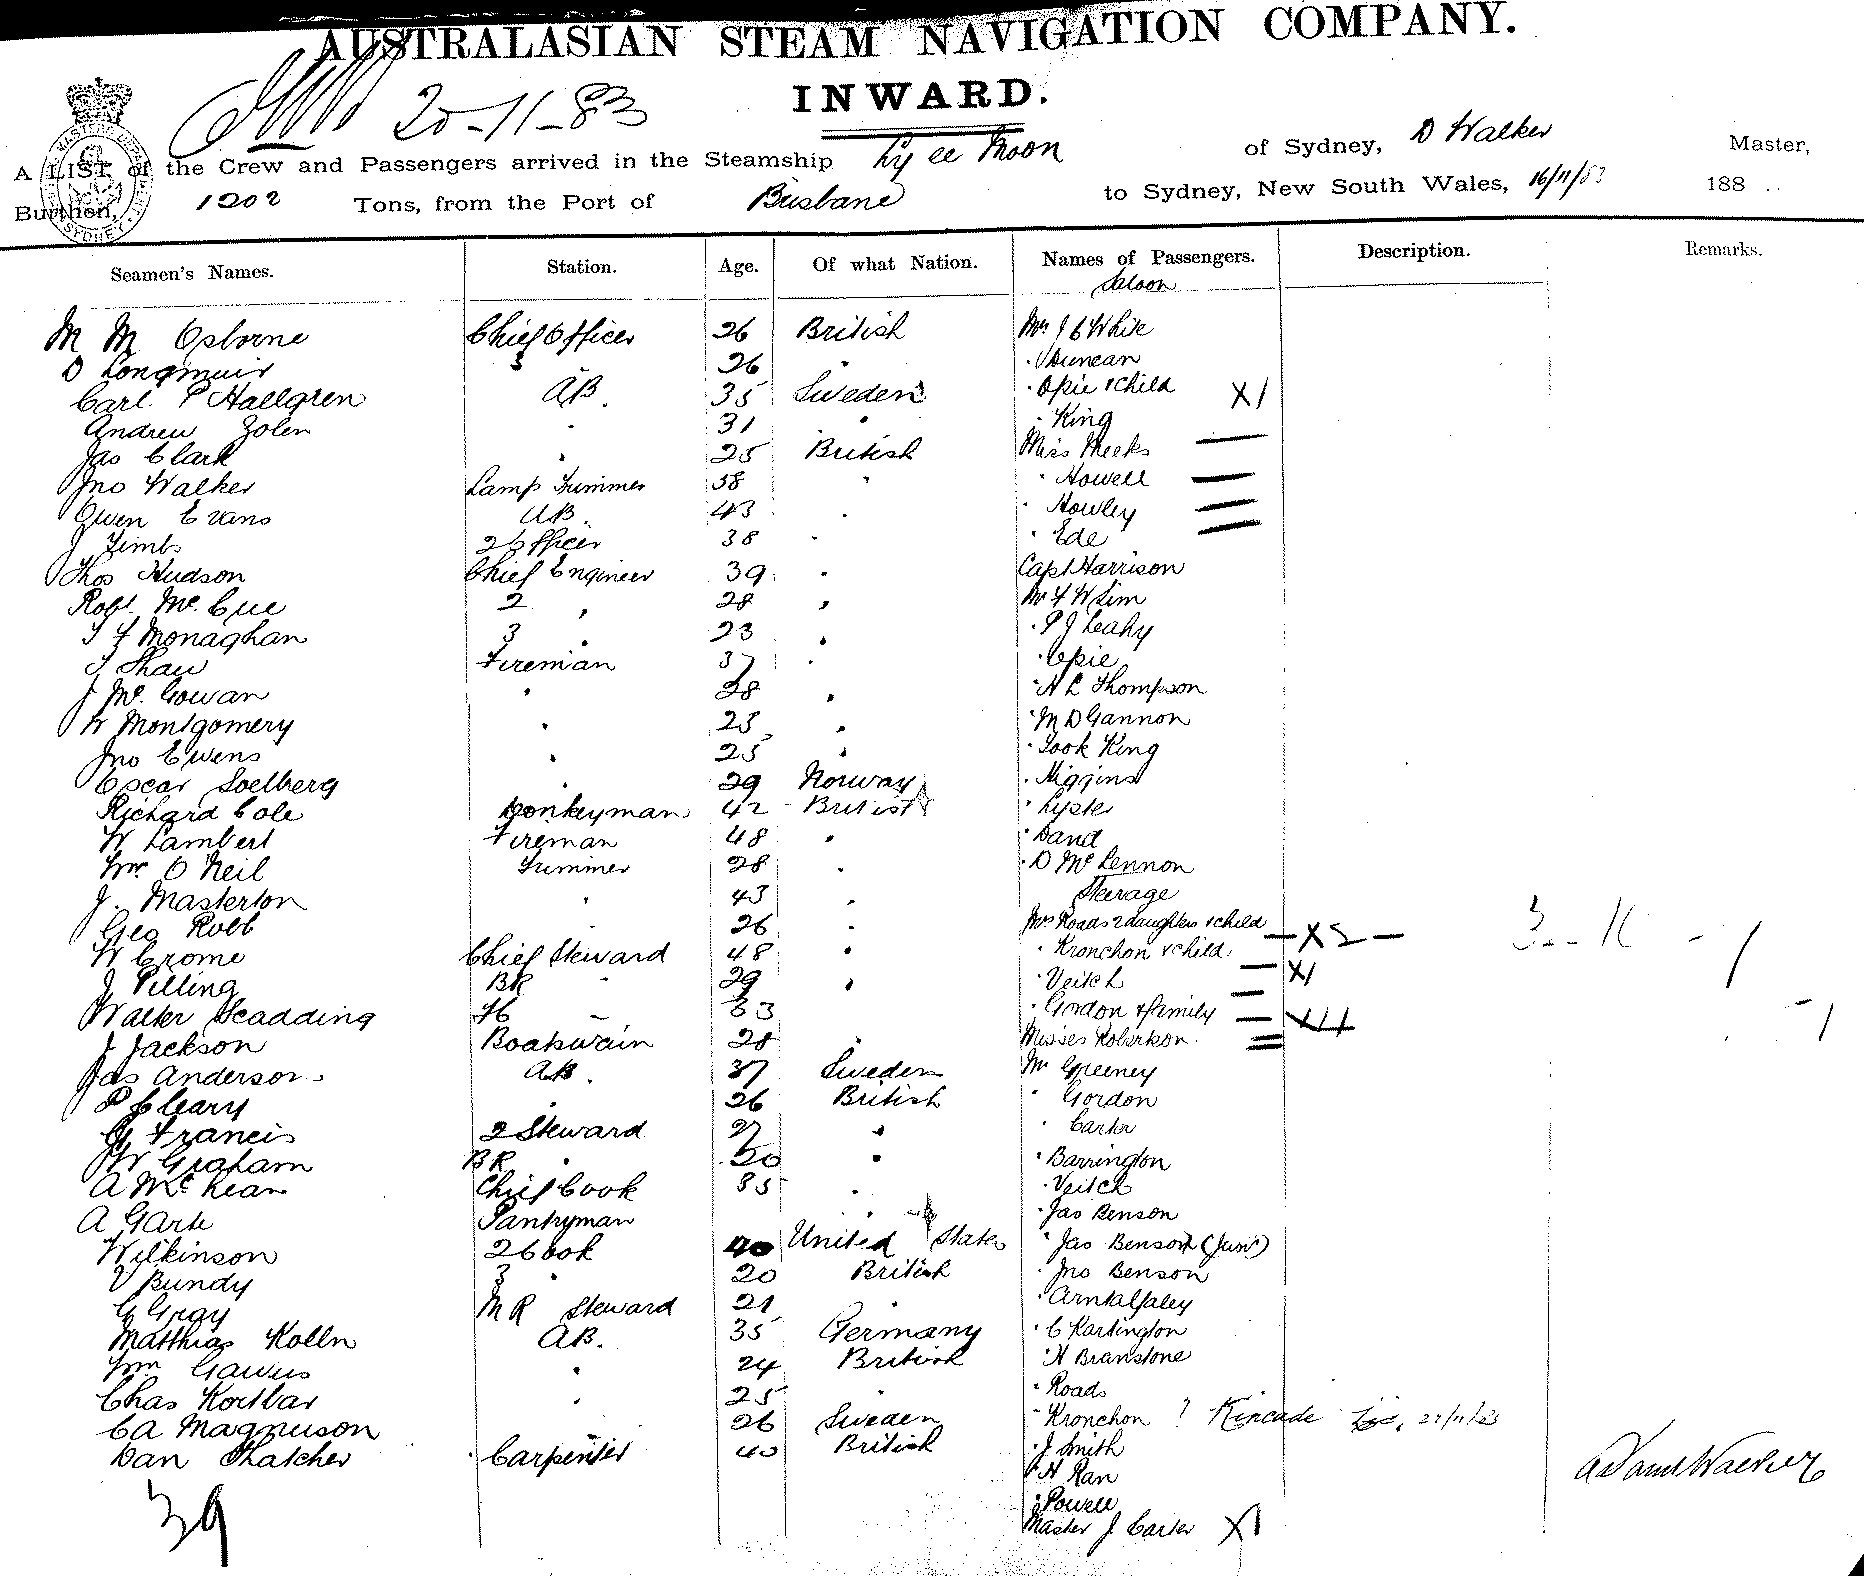 AUSTRALASIAN STEAM NAVIGATION COMPANY.
INWARD.
20-11-83
A LIST of the Crew and Passengers arrived in the Steamship Ly ee Moon of Sydney, D Walker Master,
Burthen, 1202 Tons, from the Port of Brisbane to Sydney, New South Wales, 16/11/83 188 ..
Seamen's Names. Station. Age. Of what Nation. Names of Passengers. Description. Remarks.
Saloon
M M Osborne Chief Officer 26 British Mrs J C White
D Longmuir 3 " 26 " " Duncan
Carl P Hallgren AB 35 Sweden " Opie & child X1
Andrew Zolen " 31 " " King
Jas Clark " 25 British Miss Meeks
Jno Walker Lamp Trimmer 38 " " Howell
Owen Evans AB. 43 " " Howley
J Timbs 2 Officer 38 " " Ede
Thos Hudson Chief Engineer 39 " Capt Harrison
Robt. McCue 2 " 28 " Mr F W Sim
T F Monaghan 3 " 23 " " P J Leahy
T Shaw Fireman 37 " " Opie
J McGowan " 28 " " A L Thompson
W Montgomery " 23 " " M D Gannon
Jno Ewens " 25 " " Took King
Oscar Soelberg " 29 Norway " Higgins
Richard Cole Donkeyman 42 British " Lyster
W Lambert Fireman 48 " " Dand
Wm. O Neil Trimmer 28 " " D McLennon
J. Masterton " 43 " Steerage
Geo Robb " 26 " Mrs Roads 2 daughters & child X2
W Crome Chief Steward 48 " " Kronchon & child X1
J Pilling BR " 29 " " Veitch
Walter Scadding 33 " Gordon & family
J Jackson Boatswain 28 " Misses Robertson
Jas Anderson AB. 37 Sweden Mr Greeney
P Cleary " 26 British " Gordon
G Francis 2 Steward 27 " " Carter
W Graham BR " 20 " " Barrington
A McKean Chief Cook 35 " " Veitch
A Garte Pantryman " " Jas Benson
Wilkinson 2 Cook 40 United States " Jas Benson (Junr)
V Bundy 3 " 20 British " Jno Benson
G Gray M R Steward 21 "
Matthias Kolln AB. 35 Germany " C Kartington
Wm Gawus " 24 British " H Branstone
Chas Kortbar " 25 " " Roads
CA Magnuson " 26 Sweden " Kronchon ? Kincade 21/11/83
Dan Thatcher Carpenter 40 British " J Smith
" H Ran
" Powell
Master J Carter X1
39